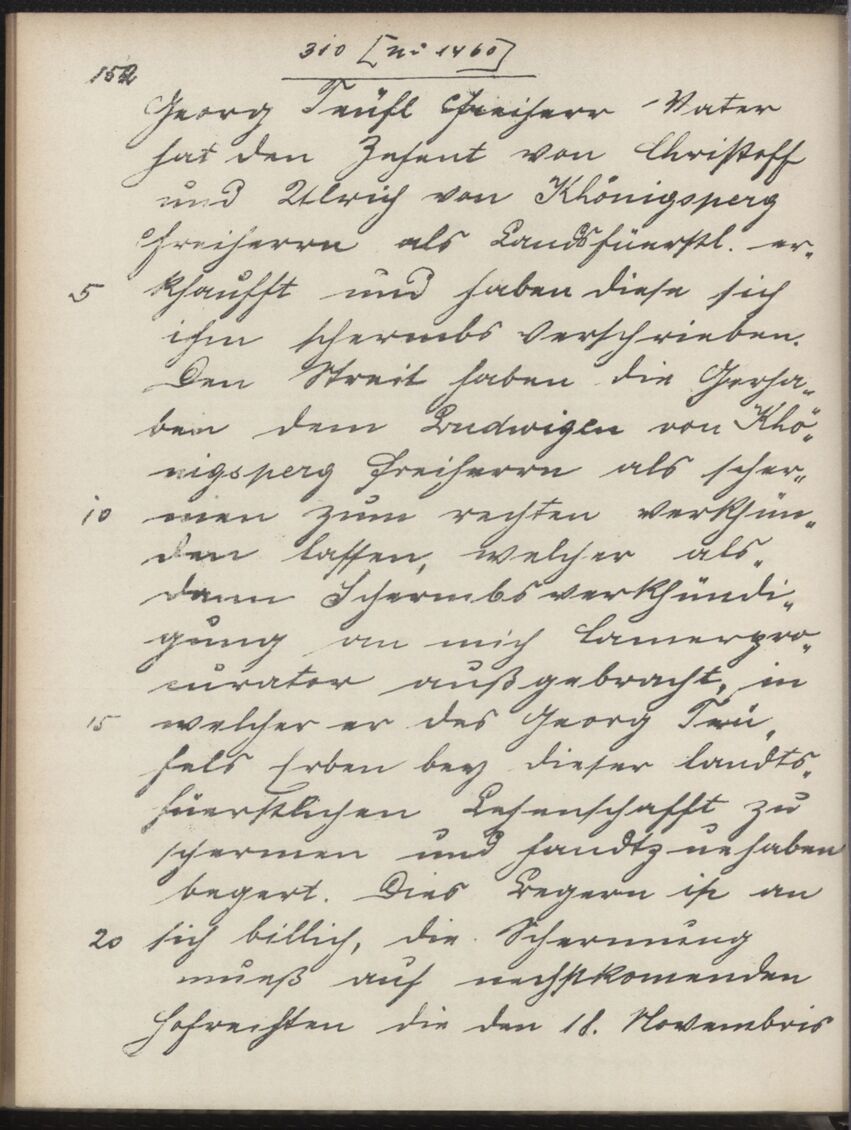 310 [Nr 1460]
152
Georg Teüfl Freiherr Vater
hat den Zehent von Christoff
und Ulrich von Khönigsperg
Freiherrn als Landsfüerstl. er„
5 khaufft und haben diese sich
ihm schermbs verschrieben.
Den Streit haben die Gerha„
ben dem Ludwigen von Khö„
nigsperg Freiherrn als scher„
10 men zum rechten verkhün„
den lassen, welcher als„
dann Schermbsverkhündi„
gung an mich Camerpro„
curator außgebracht, in
15 welcher er des Georg Teü„
fels Erben bey dieser landts„
füerstlichen Lehenschafft zu
schermen und handtzuehaben
begert. Dies Begern ist an
20 sich billich, die Schermung
mueß auf nechstkomenden
Hofrechten die den 18. Novembris